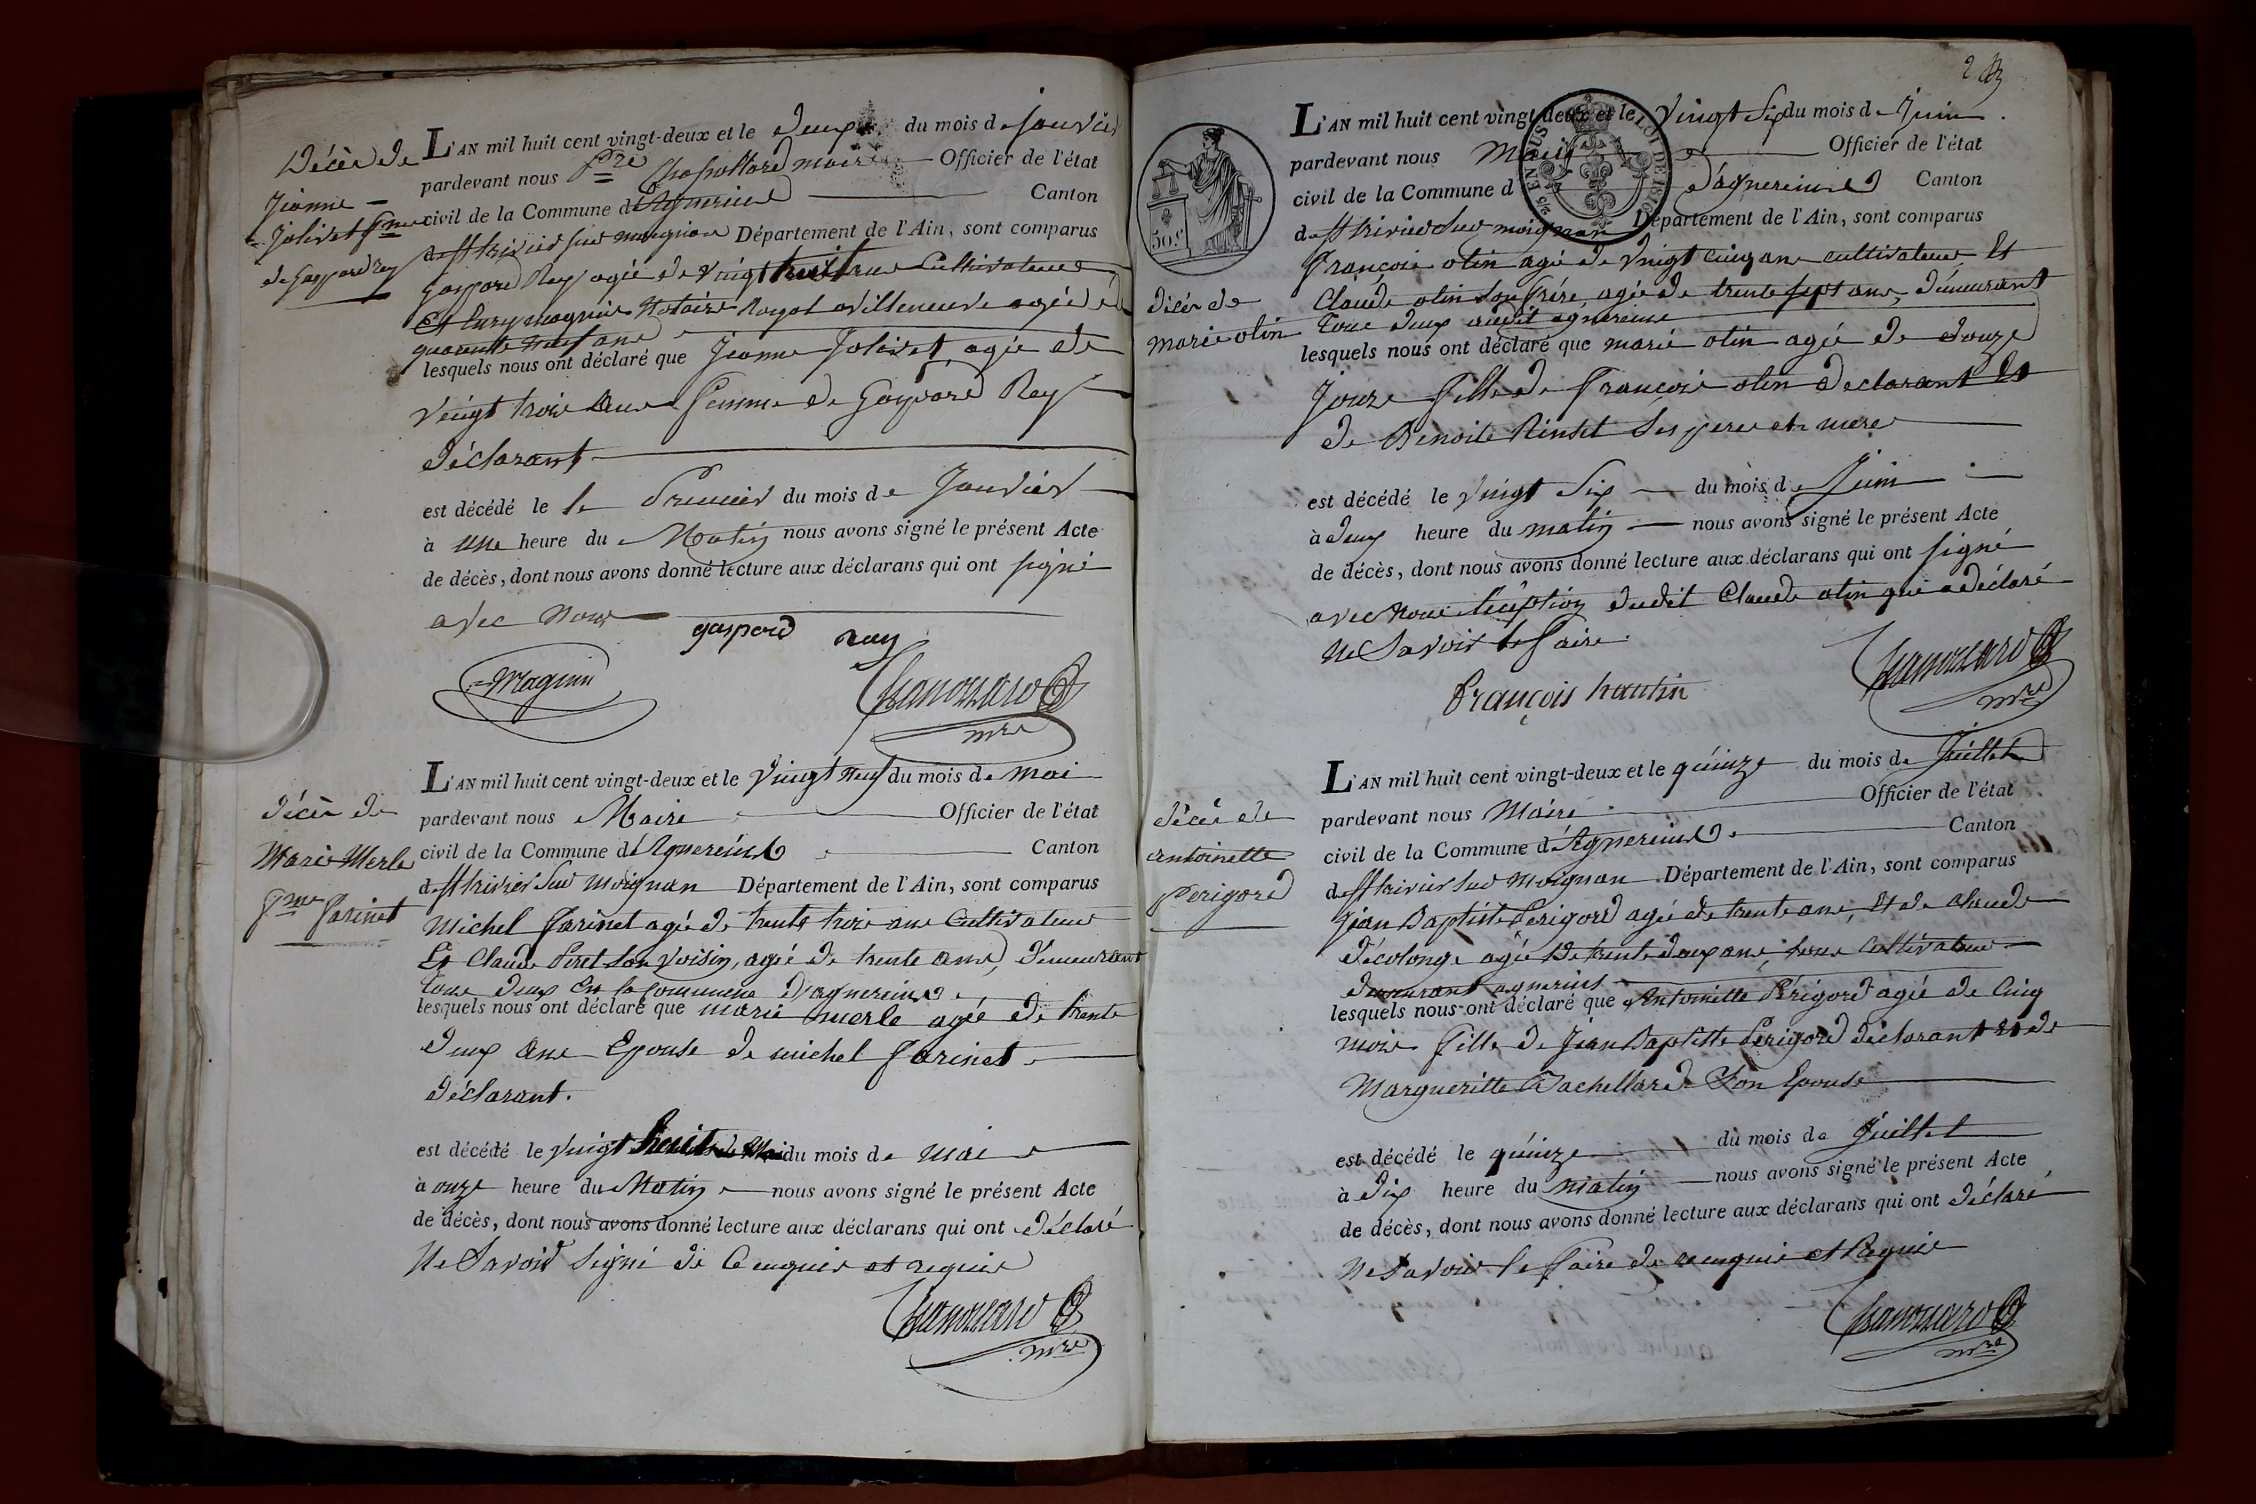 Décès de
Jeanne
Jolivet fme
de Gaspard Rey
L'AN mil huit cent vingt-deux et le deux du mois de Janvier
pardevant nous Pre maire Officier de l'état
civil de la Commune d'Agnereins Canton
de St trivier sur moignan Département de l'Ain, sont comparus
Gaspard Rey agé de vingt huit ans Cultivateur
Et magnin Notaire Royal a villeneuve agé de
quarante neuf ans
lesquels nous ont déclaré que Jeanne Jolivet agée de
vingt trois ans femme de Gaspard Rey
déclarant
est décédé le le Premier du mois de Janvier
à une heure du Matin nous avons signé le présent Acte
de décès, dont nous avons donné lecture aux déclarans qui ont signé
avec nous
gaspard rey
Magnin
mre
décès de
Marie Merle
fme farinet
L'AN mil huit cent vingt-deux et le vingt neuf du mois de mai
pardevant nous Maire Officier de l'état
civil de la Commune d'Agnereins Canton
de St trivier sur Moignan Département de l'Ain, sont comparus
Michel farinet agé de trente trois ans Cultivateur
Et Claude Piret son voisin, agé de trente ans, demeurant
tous deux en la commune d'agnereins
lesquels nous ont déclaré que marie merle agée de trente
deux ans Epouse de michel farinet
déclarant.
est décédé le vingt huit de Mai du mois de mai
à onze heure du Matin nous avons signé le présent Acte
de décès, dont nous avons donné lecture aux déclarans qui ont déclaré
Ne Savoir signé de ce enquis et requis
mre
2
50 c
EN SUS
LOI DE 1816
décès de
marie olin
L'AN mil huit cent vingt-deux et le vingt six du mois de Juin
pardevant nous Maire Officier de l'état
civil de la Commune d d'agnereins Canton
de St trivier sur moignan Département de l'Ain, sont comparus
françois olin agé de vingt cinq ans cultivateur Et
Claude olin son frére, agé de trente sept ans, demeurant
tous deux audit agnereins
lesquels nous ont déclaré que marie olin agée de douze
Jours fille de françois olin declarant Et
de Benoite Rinset ses pere et mere
est décédé le vingt six du mois de Juin
à deux heure du matin nous avons signé le présent Acte
de décès, dont nous avons donné lecture aux déclarans qui ont signé
avec nous Exception dudit Claude olin qui a déclaré
ne Savoir le faire
françois hautin
mre
décès de
antoinette
Perigord
L'AN mil huit cent vingt-deux et le quinze du mois de Juillet
pardevant nous Maire Officier de l'état
civil de la Commune d'Agnereins Canton
de St trivier sur Moignan Département de l'Ain, sont comparus
Jean Baptiste Perigord agé de trente ans, Et de claude
décolonge agé de trente deux ans, tous cultivateur
demeurant agnereins
lesquels nous ont déclaré que Antoinette Périgord agée de Cinq
mois fille de Jean Baptiste Perigord déclarant Et de
Margueritte Bachellard Son Epouse
est décédé le quinze du mois de Juillet
à dix heure du matin nous avons signé le présent Acte
de décès, dont nous avons donné lecture aux déclarans qui ont déclaré
ne Savoir le faire de ce enquis et Requis
mre